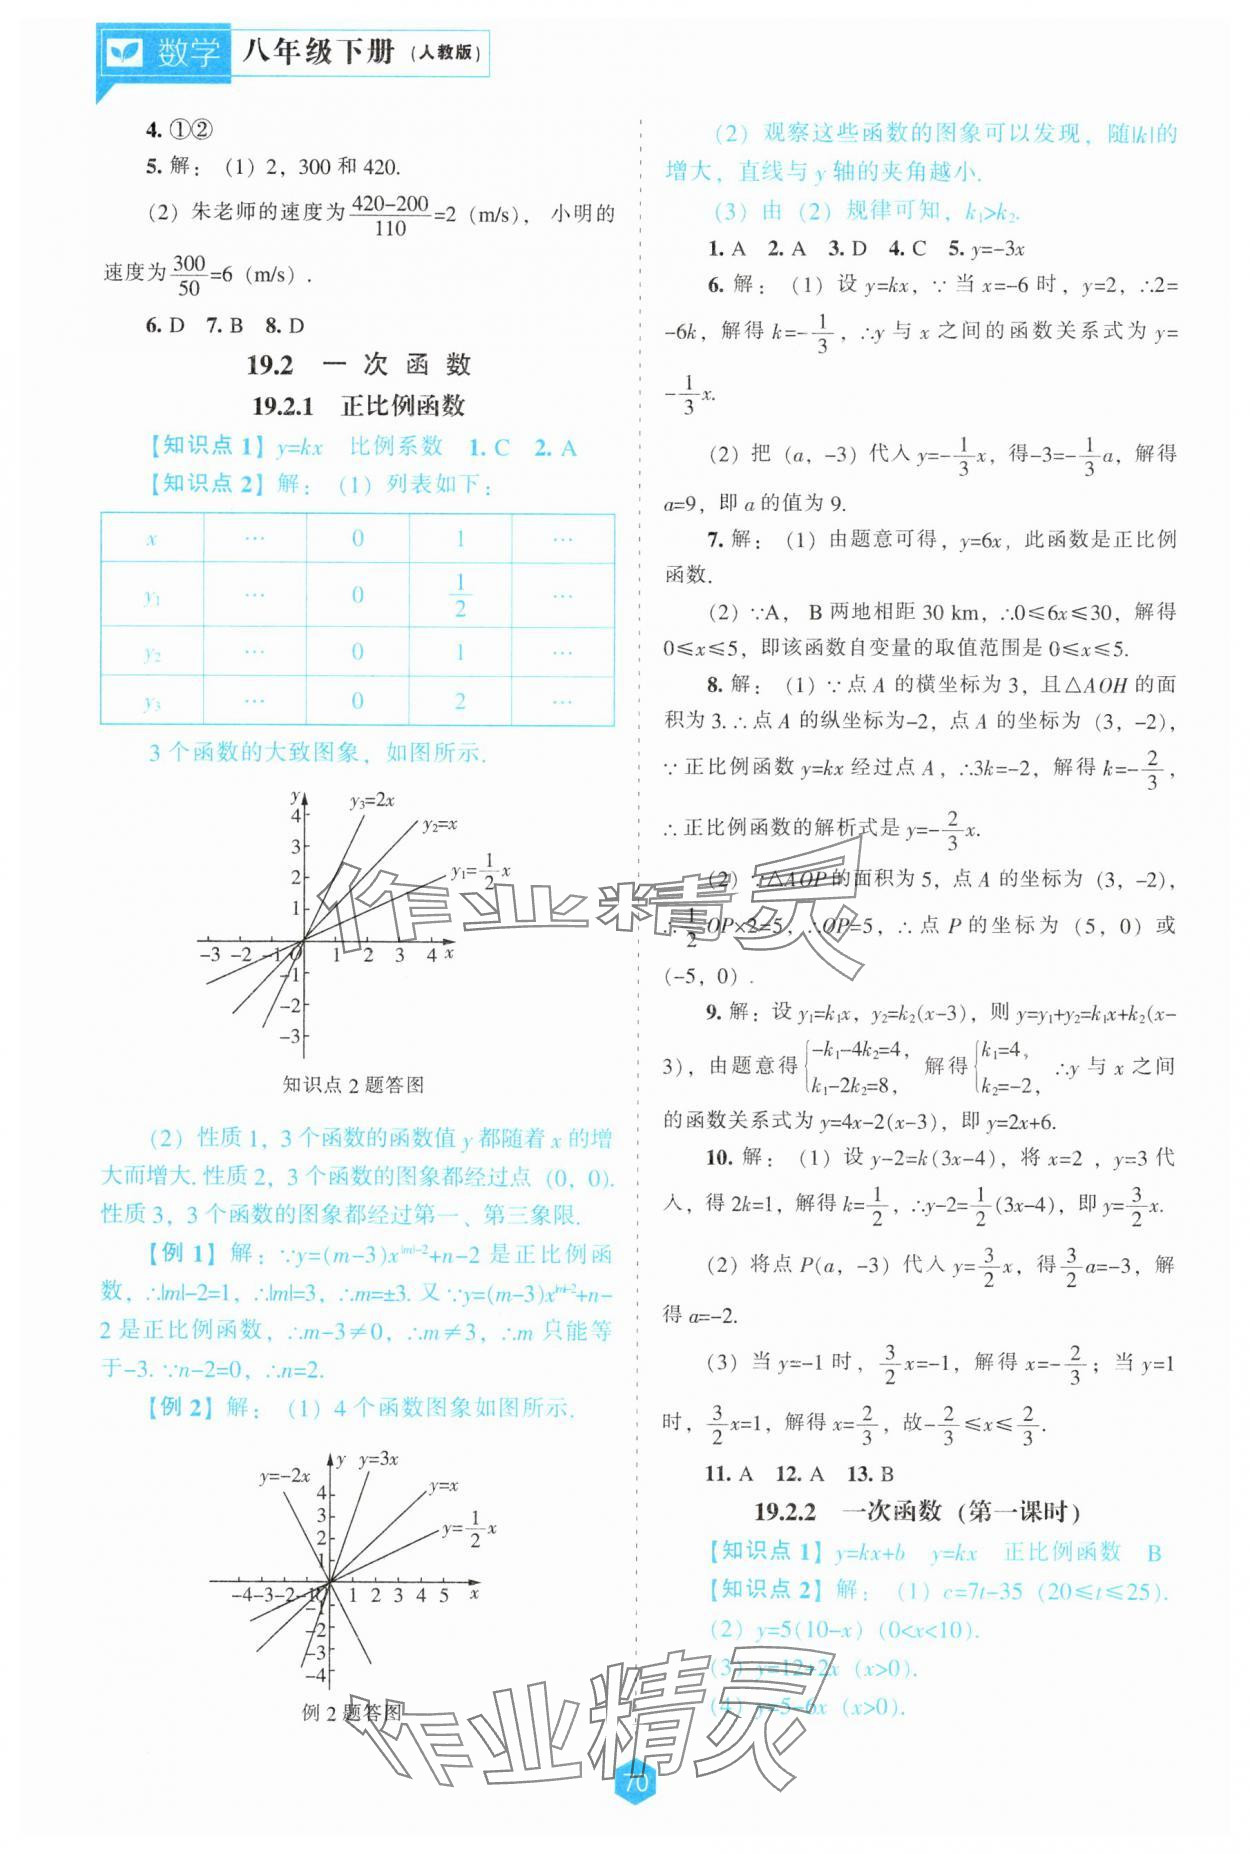 数学 八年级下册（人教版）
4. ①②
5. 解：（1）2，300 和 420.
（2）朱老师的速度为420-200/110=2（m/s），小明的
速度为300/50=6（m/s）.
6. D 7. B 8. D
19.2 一次函数
19.2.1 正比例函数
【知识点 1】y=kx 比例系数 1. C 2. A
【知识点 2】解：（1）列表如下：
x … 0 1 …
y₁ … 0 1/2 …
y₂ … 0 1 …
y₃ … 0 2 …
3 个函数的大致图象，如图所示.
y y₃=2x
y₂=x
y₁=1/2x
4
3
2
1
-3 -2 -1 O 1 2 3 4 x
-1
-2
-3
知识点 2 题答图
（2）性质 1，3 个函数的函数值 y 都随着 x 的增
大而增大. 性质 2，3 个函数的图象都经过点（0，0）.
性质 3，3 个函数的图象都经过第一、第三象限.
【例 1】解：∵y=(m-3)x^{|m|-2}+n-2 是正比例函
数，∴|m|-2=1，∴|m|=3，∴m=±3. 又∵y=(m-3)x^{|m|-2}+n-
2 是正比例函数，∴m-3≠0，∴m≠3，∴m 只能等
于-3. ∵n-2=0，∴n=2.
【例 2】解：（1）4 个函数图象如图所示.
y=-2x y y=3x
y=x
y=1/2x
4
3
2
1
-4 -3 -2 -1 O 1 2 3 4 5 x
-1
-2
-3
-4
例 2 题答图
（2）观察这些函数的图象可以发现，随|k|的
增大，直线与 y 轴的夹角越小.
（3）由（2）规律可知，k₁>k₂.
1. A 2. A 3. D 4. C 5. y=-3x
6. 解：（1）设 y=kx，∵当 x=-6 时，y=2，∴2=
-6k，解得 k=-1/3，∴y 与 x 之间的函数关系式为 y=
-1/3x.
（2）把（a，-3）代入 y=-1/3x，得-3=-1/3a，解得
a=9，即 a 的值为 9.
7. 解：（1）由题意可得，y=6x，此函数是正比例
函数.
（2）∵A，B 两地相距 30 km，∴0≤6x≤30，解得
0≤x≤5，即该函数自变量的取值范围是 0≤x≤5.
8. 解：（1）∵点 A 的横坐标为 3，且△AOH 的面
积为 3. ∴点 A 的纵坐标为-2，点 A 的坐标为（3，-2），
∵正比例函数 y=kx 经过点 A，∴3k=-2，解得 k=-2/3，
∴正比例函数的解析式是 y=-2/3x.
（2）∵△AOP 的面积为 5，点 A 的坐标为（3，-2），
∴1/2OP×2=5，∴OP=5，∴点 P 的坐标为（5，0）或
（-5，0）.
9. 解：设 y₁=k₁x，y₂=k₂(x-3)，则 y=y₁+y₂=k₁x+k₂(x-
3)，由题意得{-k₁-4k₂=4，k₁-2k₂=8， 解得{k₁=4，k₂=-2， ∴y 与 x 之间
的函数关系式为 y=4x-2(x-3)，即 y=2x+6.
10. 解：（1）设 y-2=k(3x-4)，将 x=2，y=3 代
入，得 2k=1，解得 k=1/2，∴y-2=1/2(3x-4)，即 y=3/2x.
（2）将点 P(a，-3）代入 y=3/2x，得3/2a=-3，解
得 a=-2.
（3）当 y=-1 时，3/2x=-1，解得 x=-2/3；当 y=1
时，3/2x=1，解得 x=2/3，故-2/3≤x≤2/3.
11. A 12. A 13. B
19.2.2 一次函数（第一课时）
【知识点 1】y=kx+b y=kx 正比例函数 B
【知识点 2】解：（1）c=7t-35（20≤t≤25）.
（2）y=5(10-x)（0<x<10）.
（3）y=12+2x（x>0）.
（4）y=5-6x（x>0）.
70
作业精灵
作业精灵